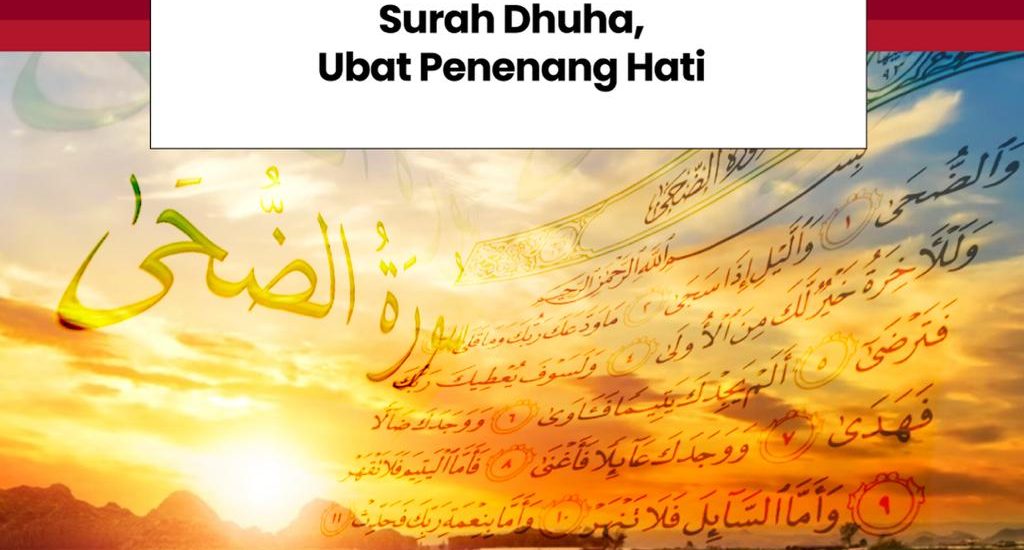 Surah Dhuha,
Ubat Penenang Hati
سورة الضحى
سُورَةُ الضُّحَىٰ
بِسْمِ اللَّهِ الرَّحْمَٰنِ الرَّحِيمِ
وَالضُّحَىٰ ١ وَالَّيْلِ إِذَا سَجَىٰ ٢ مَا وَدَّعَكَ رَبُّكَ وَمَا قَلَىٰ
وَلَلْآخِرَةُ خَيْرٌ لَّكَ مِنَ الْأُولَىٰ ٤ وَلَسَوْفَ يُعْطِيكَ رَبُّكَ
فَتَرْضَىٰ ٥ أَلَمْ يَجِدْكَ يَتِيمًا فَـَٔاوَىٰ ٦ وَوَجَدَكَ ضَالًّا
فَهَدَىٰ ٧ وَوَجَدَكَ عَآئِلًا فَأَغْنَىٰ ٨ فَأَمَّا الْيَتِيمَ فَلَا تَقْهَرْ
٩ وَأَمَّا السَّآئِلَ فَلَا تَنْهَرْ ١٠ وَأَمَّا بِنِعْمَةِ رَبِّكَ فَحَدِّثْ ١١